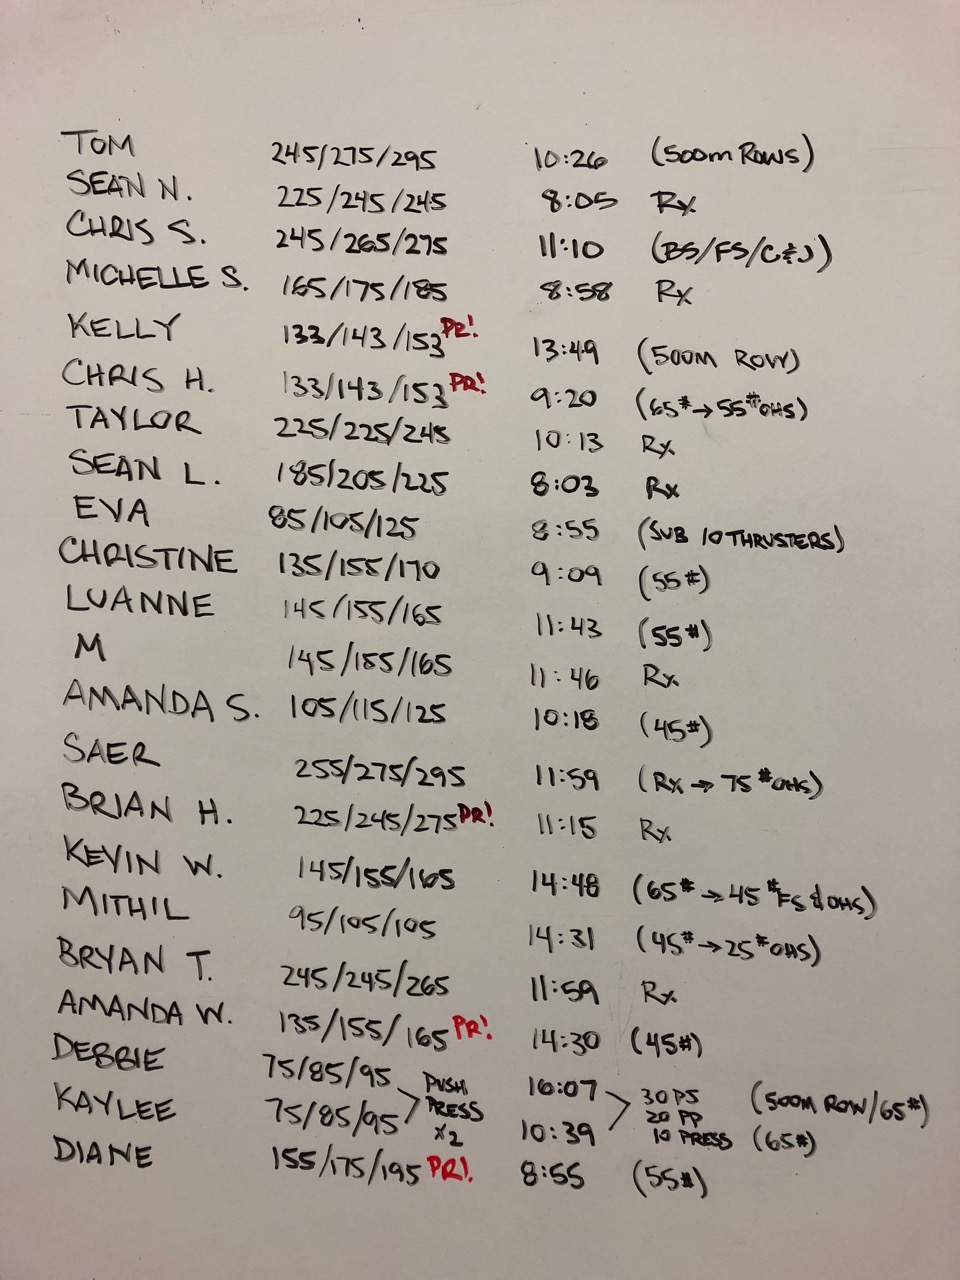 TOM 245/275/295 10:26 (500m Rows)
SEAN N. 225/245/245 8:05 Rx
CHRIS S. 245/265/275 11:10 (BS/FS/C&J)
MICHELLE S. 165/175/185 8:58 Rx
KELLY 133/143/153 PR! 13:49 (500M ROW)
CHRIS H. 133/143/153 PR! 9:20 (65#→55# OHS)
TAYLOR 225/225/245 10:13 Rx
SEAN L. 185/205/225 8:03 Rx
EVA 85/105/125 8:55 (SUB 10 THRUSTERS)
CHRISTINE 135/155/170 9:09 (55#)
LUANNE 145/155/165 11:43 (55#)
M 145/155/165 11:46 Rx
AMANDA S. 105/115/125 10:18 (45#)
SAER 255/275/295 11:59 (Rx→75# OHS)
BRIAN H. 225/245/275 PR! 11:15 Rx
KEVIN W. 145/155/165 14:48 (65#→45# FS & OHS)
MITHIL 95/105/105 14:31 (45#→25# OHS)
BRYAN T. 245/245/265 11:59 Rx
AMANDA W. 135/155/165 PR! 14:30 (45#)
DEBBIE 75/85/95 PUSH 10:07 30 PS (500M ROW/65#)
KAYLEE 75/85/95 PRESS 10:39 20 PP
x2 10 PRESS (65#)
DIANE 155/175/195 PR! 8:55 (55#)